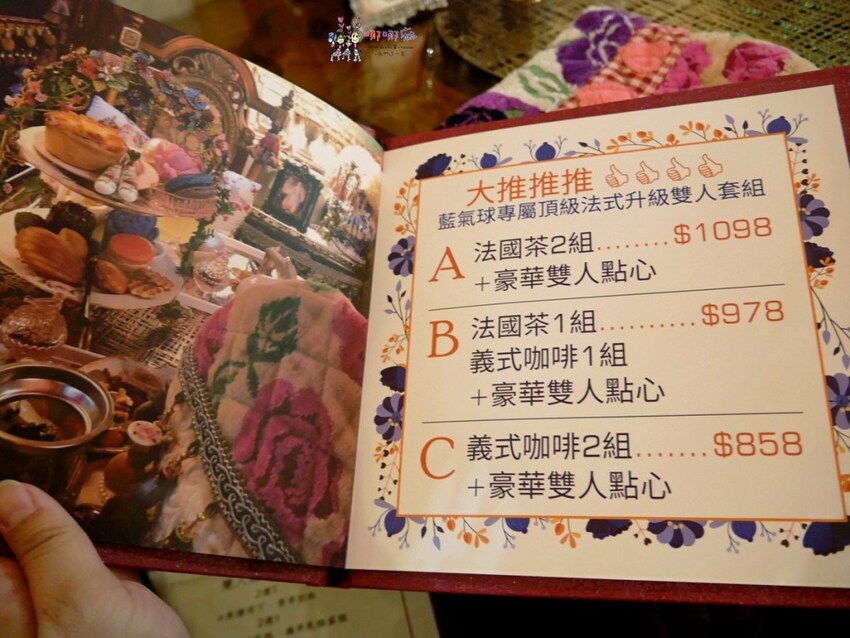 大推推推
藍氣球專屬頂級法式升級雙人套組
A 法國茶2組........$1098
+豪華雙人點心
B 法國茶1組..........$978
義式咖啡1組
+豪華雙人點心
C 義式咖啡2組.......$858
+豪華雙人點心
2選1
2選1